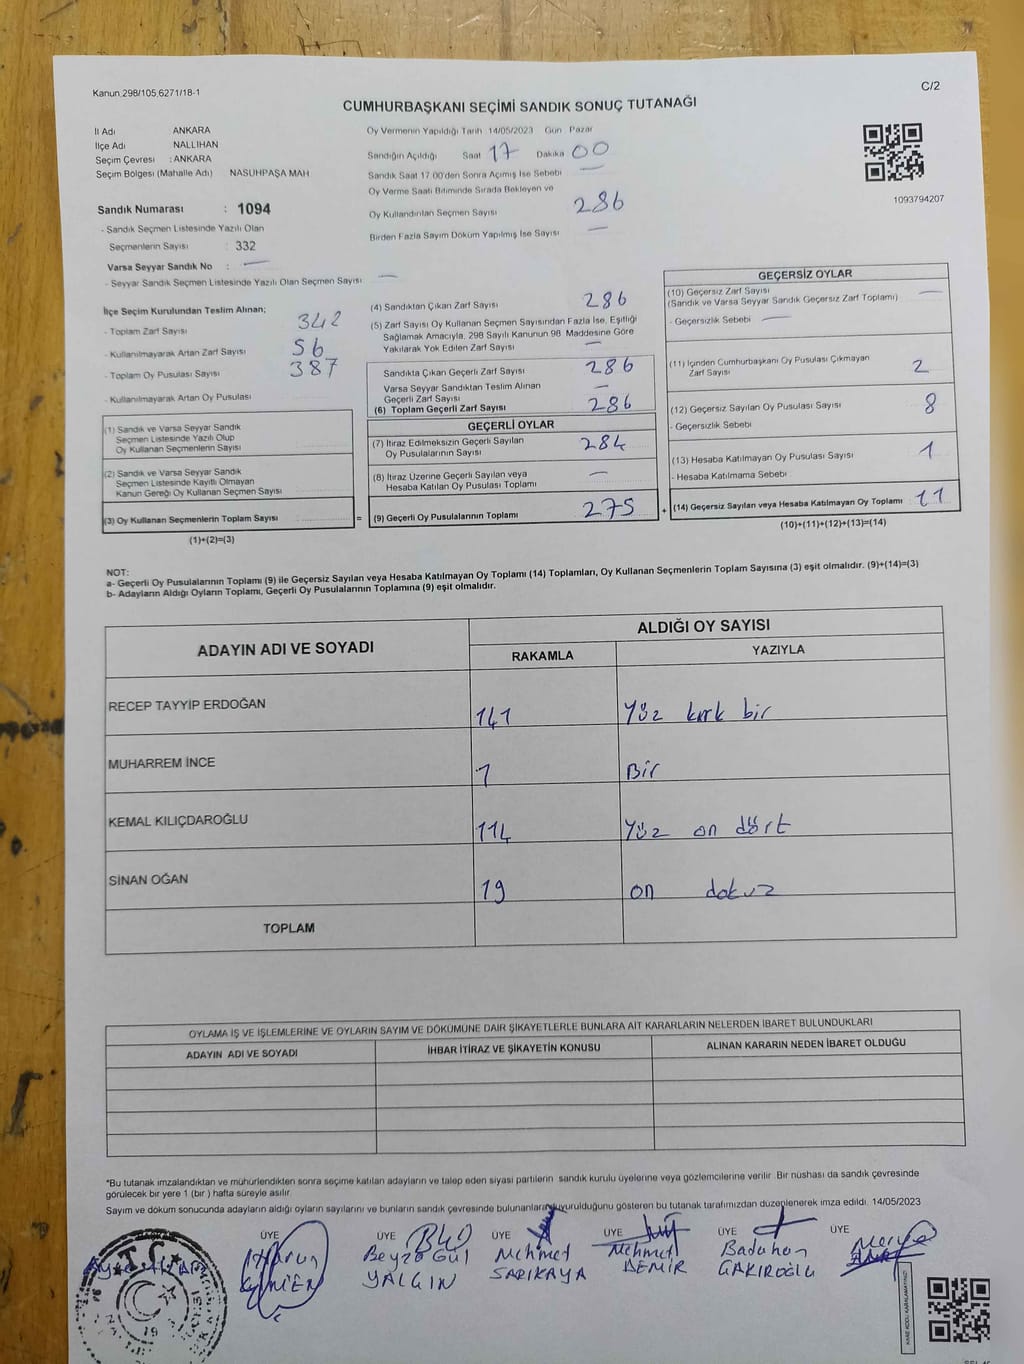 Kanun 298/105,6271/18-1
C/2
CUMHURBAŞKANI SEÇİMİ SANDIK SONUÇ TUTANAĞI
İl Adı ANKARA
İlçe Adı NALLIHAN
Seçim Çevresi : ANKARA
Seçim Bölgesi (Mahalle Adı) NASUHPAŞA MAH
Sandık Numarası : 1094
- Sandık Seçmen Listesinde Yazılı Olan
Seçmenlerin Sayısı : 332
Varsa Seyyar Sandık No : —
- Seyyar Sandık Seçmen Listesinde Yazılı Olan Seçmen Sayısı —
Oy Vermenin Yapıldığı Tarih 14/05/2023 Gün Pazar
Sandığın Açıldığı Saat 17 Dakika 00
Sandık Saat 17.00'den Sonra Açımış İse Sebebi —
Oy Verme Saati Bitiminde Sırada Bekleyen ve
Oy Kullandırılan Seçmen Sayısı 286
Birden Fazla Sayım Döküm Yapılmış İse Sayısı —
1093794207
İlçe Seçim Kurulundan Teslim Alınan;
- Toplam Zarf Sayısı 342
- Kullanılmayarak Artan Zarf Sayısı 56
- Toplam Oy Pusulası Sayısı 387
- Kullanılmayarak Artan Oy Pusulası
(1) Sandık ve Varsa Seyyar Sandık
Seçmen Listesinde Yazılı Olup
Oy Kullanan Seçmenlerin Sayısı
(2) Sandık ve Varsa Seyyar Sandık
Seçmen Listesinde Kayıtlı Olmayan
Kanun Gereği Oy Kullanan Seçmen Sayısı
(3) Oy Kullanan Seçmenlerin Toplam Sayısı =
(1)+(2)=(3)
(4) Sandıktan Çıkan Zarf Sayısı 286
(5) Zarf Sayısı Oy Kullanan Seçmen Sayısından Fazla İse, Eşitliği
Sağlamak Amacıyla, 298 Sayılı Kanunun 98. Maddesine Göre
Yakılarak Yok Edilen Zarf Sayısı —
Sandıkta Çıkan Geçerli Zarf Sayısı 286
Varsa Seyyar Sandıktan Teslim Alınan
Geçerli Zarf Sayısı —
(6) Toplam Geçerli Zarf Sayısı 286
GEÇERLİ OYLAR
(7) İtiraz Edilmeksizin Geçerli Sayılan
Oy Pusulalarının Sayısı 284
(8) İtiraz Üzerine Geçerli Sayılan veya
Hesaba Katılan Oy Pusulası Toplamı —
(9) Geçerli Oy Pusulalarının Toplamı 275 +
GEÇERSİZ OYLAR
(10) Geçersiz Zarf Sayısı —
(Sandık ve Varsa Seyyar Sandık Geçersiz Zarf Toplamı)
- Geçersizlik Sebebi —
(11) İçinden Cumhurbaşkanı Oy Pusulası Çıkmayan
Zarf Sayısı 2
(12) Geçersiz Sayılan Oy Pusulası Sayısı 8
- Geçersizlik Sebebi
(13) Hesaba Katılmayan Oy Pusulası Sayısı 1
- Hesaba Katılmama Sebebi
(14) Geçersiz Sayılan veya Hesaba Katılmayan Oy Toplamı 11
(10)+(11)+(12)+(13)=(14)
NOT:
a- Geçerli Oy Pusulalarının Toplamı (9) ile Geçersiz Sayılan veya Hesaba Katılmayan Oy Toplamı (14) Toplamları, Oy Kullanan Seçmenlerin Toplam Sayısına (3) eşit olmalıdır. (9)+(14)=(3)
b- Adayların Aldığı Oyların Toplamı, Geçerli Oy Pusulalarının Toplamına (9) eşit olmalıdır.
ADAYIN ADI VE SOYADI ALDIĞI OY SAYISI
RAKAMLA YAZIYLA
RECEP TAYYİP ERDOĞAN 141 Yüz kırk bir
MUHARREM İNCE 1 Bir
KEMAL KILIÇDAROĞLU 114 Yüz on dört
SİNAN OĞAN 19 on dokuz
TOPLAM
OYLAMA İŞ VE İŞLEMLERİNE VE OYLARIN SAYIM VE DÖKÜMÜNE DAİR ŞİKAYETLERLE BUNLARA AİT KARARLARIN NELERDEN İBARET BULUNDUKLARI
ADAYIN ADI VE SOYADI İHBAR İTİRAZ VE ŞİKAYETİN KONUSU ALINAN KARARIN NEDEN İBARET OLDUĞU
*Bu tutanak imzalandıktan ve mühürlendikten sonra seçime katılan adayların ve talep eden siyasi partilerin sandık kurulu üyelerine veya gözlemcilerine verilir. Bir nüshası da sandık çevresinde
görülecek bir yere 1 (bir ) hafta süreyle asılır.
Sayım ve döküm sonucunda adayların aldığı oyların sayılarını ve bunların sandık çevresinde bulunanlara duyurulduğunu gösteren bu tutanak tarafımızdan düzenlenerek imza edildi. 14/05/2023
BAŞKAN ÜYE ÜYE ÜYE ÜYE ÜYE ÜYE
Harun Beyza Gül Mehmet Mehmet Batuhan Merve
YALGIN SARIKAYA DEMİR GAKIROĞLU
T.C.